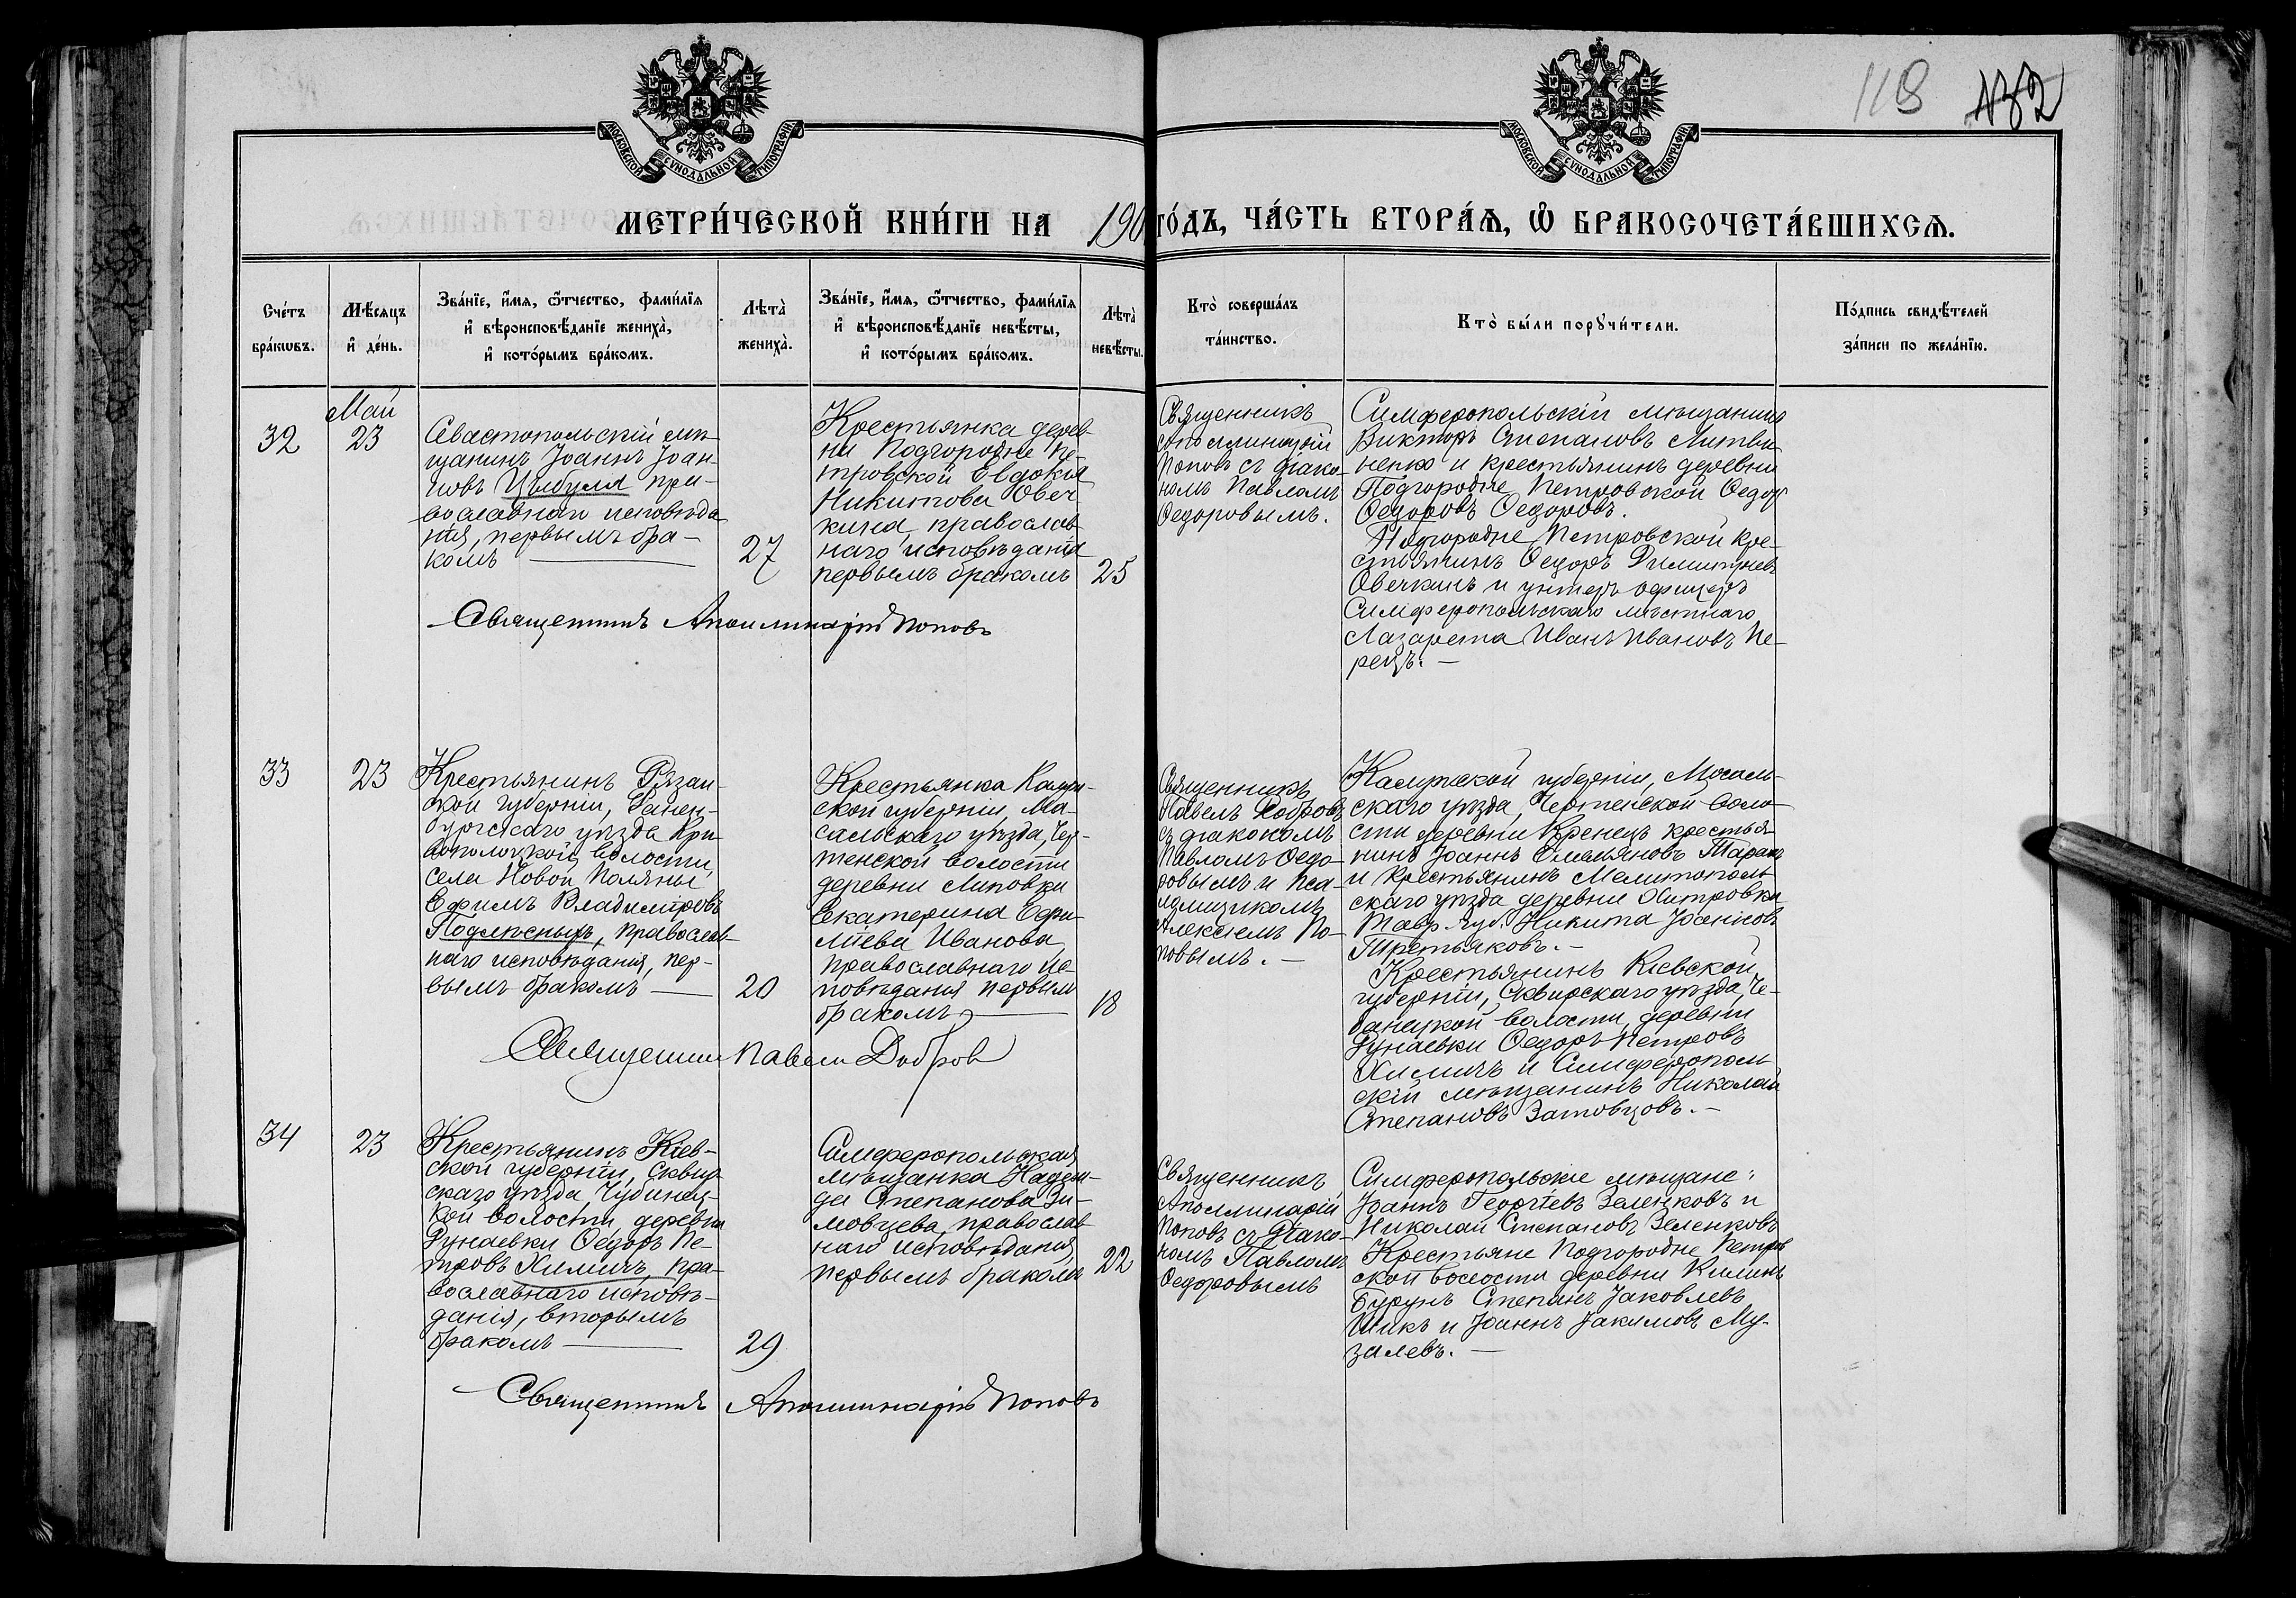 118 132
МОСКОВСКОЙ СѴНОДАЛЬНОЙ ТИПОГРАФІИ
МОСКОВСКОЙ СѴНОДАЛЬНОЙ ТИПОГРАФІИ
МЕТРИ́ЧЕСКОЙ КНИ́ГИ НА 190
ГО́ДЪ, ЧА́СТЬ ВТОРА́Ѧ, Ѡ҆ БРАКОСОЧЕТА́ВШИХСѦ.
Сче́тъ
бра́кωвъ.
Мѣ́сяцъ
и҆ де́нь.
Зва́нїе, и҆́мя, ѻ҆́тчество, фами́лїя
и҆ вѣроисповѣ́данїе жениха̀,
и҆ кото́рымъ бра́комъ.
Лѣта̀
жениха̀.
Зва́нїе, и҆́мя, ѻ҆́тчество, фами́лїя
и҆ вѣроисповѣ́данїе невѣ́сты,
и҆ кото́рымъ бра́комъ.
Лѣта̀
невѣ́сты.
Кто̀ соверша́лъ
та́инство.
Кто̀ бы́ли порꙋчи́тели.
По́дпись свидѣ́телей
за́писи по жела́нїю.
32
Май
23
Севастопольскій мѣ-
щанинъ Іоаннъ Іоан-
новъ Цыбуля пра-
вославнаго исповѣда
нія, первымъ бра-
комъ
27
Крестьянка дерев
ни Подгородне Пе-
тровской Евдокія
Никитова Овеч
кина, православ
наго исповѣданія
первымъ бракомъ
25
Священникъ
Аполлинарій
Поповъ съ діако-
номъ Павломъ
Ѳедоровымъ.
Симферопольскій мѣщанинъ
Викторъ Степановъ Литви-
ненко и крестьянинъ деревни
Подгородне Петровской Ѳедоръ
Ѳедоровъ Ѳедоровъ.
Подгородне Петровской кре-
стьянинъ Ѳедоръ Димитріевъ
Овечкинъ и унтеръ офицеръ
Симферопольскаго мѣстнаго
Лазарета Иванъ Ивановъ Пе-
рецъ.
Священникъ Аполлинарій Поповъ
33
23
Крестьянинъ Рязан-
ской губерніи, Ранен-
бургскаго уѣзда Кри
вополоцкой волости,
села Новой Поляны
Ефимъ Владиміровъ
Подлѣсныхъ, православ-
наго исповѣданія, пер-
вымъ бракомъ
20
Крестьянка Калуж-
ской губерніи, Мо-
сальскаго уѣзда, Чер-
тенской волости
деревни Липовки
Екатерина Ефи-
міева Иванова
православнаго ис-
повѣданія первымъ
бракомъ
18
Священникъ
Павелъ Добровъ
съ діакономъ
Павломъ Ѳедо-
ровымъ и пса-
ломщикомъ
Алексѣемъ По-
повымъ.
Калужской губерніи, Мосаль-
скаго уѣзда, Чертенской воло-
сти деревни Кренецъ крестья-
нинъ Іоаннъ Емельяновъ
и крестьянинъ Мелитополь-
скаго уѣзда деревни Дмитровки
Тавр. губ. Никита Іоанновъ
Третьяковъ.
Крестьянинъ Кіевской
губерніи, Сквирскаго уѣзда, Че-
банецкой волости, деревни
Дунаевки Ѳедоръ Петровъ
Химичъ и Симферополь
скій мѣщанинъ Николай
Степановъ
Священникъ Павелъ Добров
34
23
Крестьянинъ Кіев-
ской губерніи, Сквир-
скаго уѣзда, Чубинец-
кой волости, деревни
Дунаевки Ѳедоръ Пе-
тровъ Химичъ, пра-
вославнаго исповѣ-
данія, вторымъ
бракомъ
29
Симферопольская
мѣщанка Надеж-
да Степанова Зи-
мовцева, православ
наго исповѣданія,
первымъ бракомъ
22
Священникъ
Аполлинарій
Поповъ съ діако-
номъ Павломъ
Ѳедоровымъ
Симферопольскіе мѣщане:
Іоаннъ Георгіевъ Зеленковъ и
Николай Степановъ Зеленковъ
Крестьяне Подгородне Петров
ской волости деревни
Бурунъ Степанъ Іаковлевъ
Шикъ и Іоаннъ Іакимовъ Му-
залевъ.
Священникъ Аполлинарій Поповъ